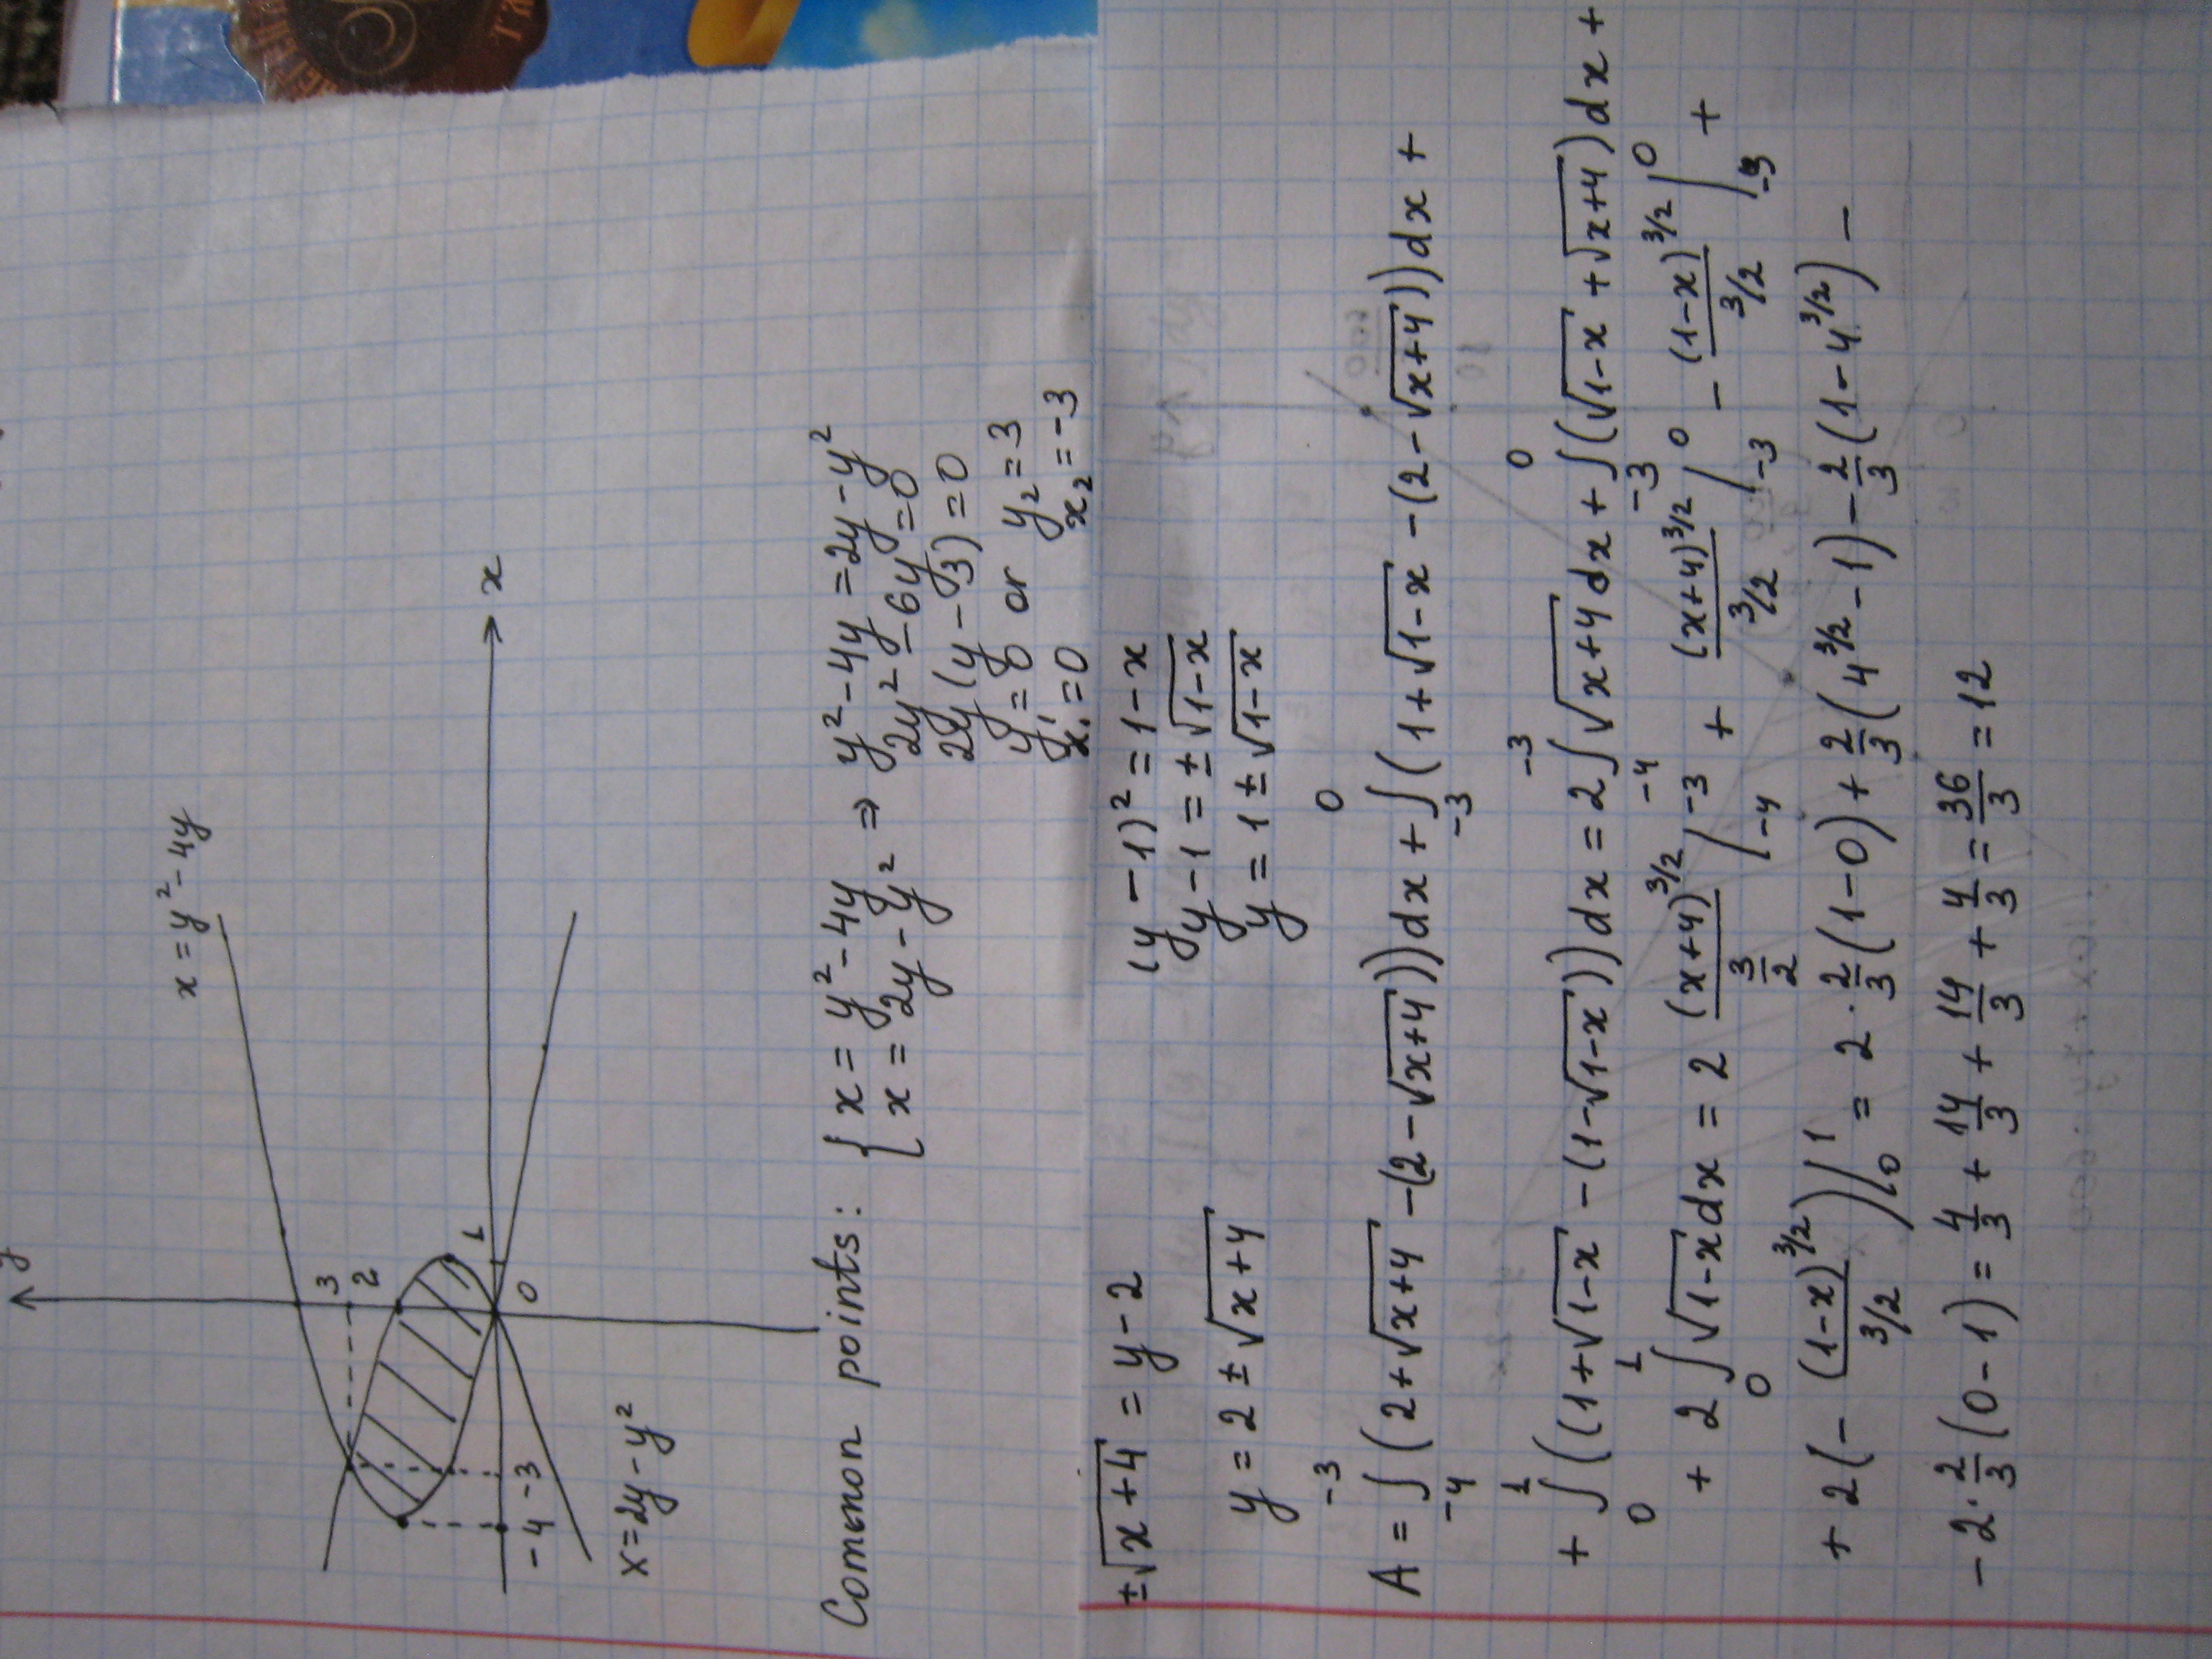 y
x = y² - 4y
3
2
1
0
x
-4 -3
x = 2y - y²
Common points: { x = y² - 4y
x = 2y - y² ⇒ y² - 4y = 2y - y²
2y² - 6y = 0
2y(y - 3) = 0
y₁ = 0 or y₂ = 3
x₁ = 0 x₂ = -3
±√(x+4) = y - 2 (y - 1)² = 1 - x
y - 1 = ±√(1-x)
y = 2 ± √(x+4) y = 1 ± √(1-x)
A = ∫_{-4}^{-3} (2 + √(x+4) - (2 - √(x+4)))dx + ∫_{-3}^{0} (1 + √(1-x) - (2 - √(x+4)))dx +
+ ∫_{0}^{1} ((1 + √(1-x) - (1 - √(1-x)))dx = 2∫_{-4}^{-3} √(x+4) dx + ∫_{-3}^{0} (√(1-x) + √(x+4))dx +
+ 2∫_{0}^{1} √(1-x) dx = 2 (x+4)^{3/2}/(3/2) |_{-4}^{-3} + (x+4)^{3/2}/(3/2) |_{-3}^{0} - (1-x)^{3/2}/(3/2) |_{-3}^{0} +
+ 2(- (1-x)^{3/2}/(3/2)) |_{0}^{1} = 2 · 2/3 (1 - 0) + 2/3 (4^{3/2} - 1) - 2/3 (1 - 4^{3/2}) -
- 2 · 2/3 (0 - 1) = 4/3 + 14/3 + 14/3 + 4/3 = 36/3 = 12